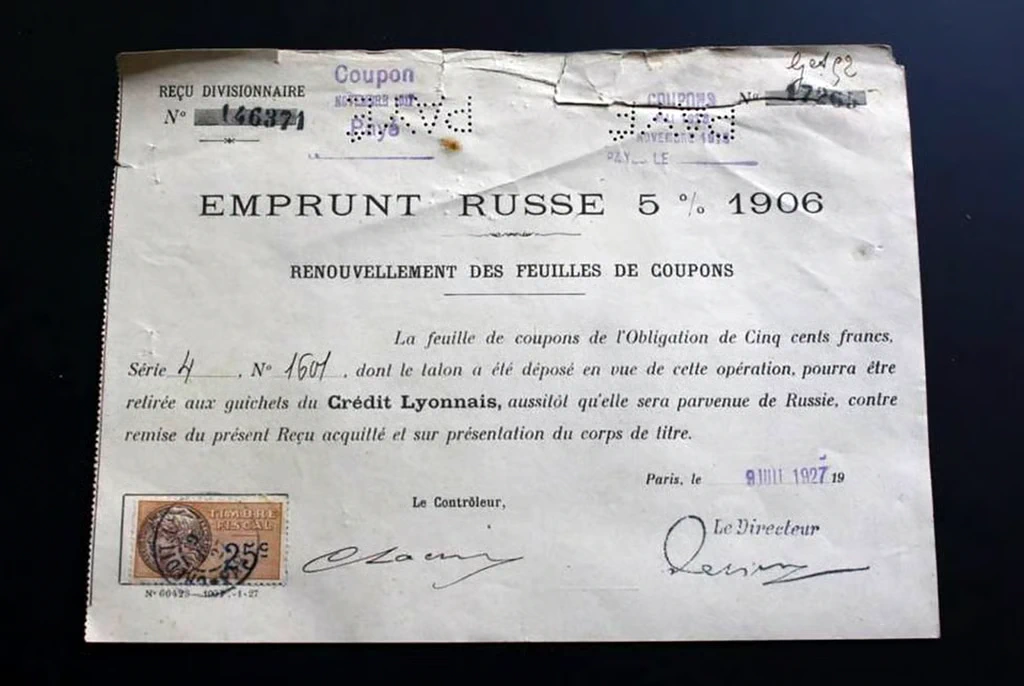 REÇU DIVISIONNAIRE
N° 146371
Coupon
NOVEMBRE 1917
Payé
COUPONS
NOVEMBRE 1918
PAY LE
N° 17265
EMPRUNT RUSSE 5 % 1906
RENOUVELLEMENT DES FEUILLES DE COUPONS
La feuille de coupons de l'Obligation de Cinq cents francs,
Série 4, N° 1601, dont le talon a été déposé en vue de cette opération, pourra être
retirée aux guichets du Crédit Lyonnais, aussitôt qu'elle sera parvenue de Russie, contre
remise du présent Reçu acquitté et sur présentation du corps de titre.
Paris, le 9 JUIL 1927 19
Le Contrôleur,
Le Directeur
TIMBRE
FISCAL
25c